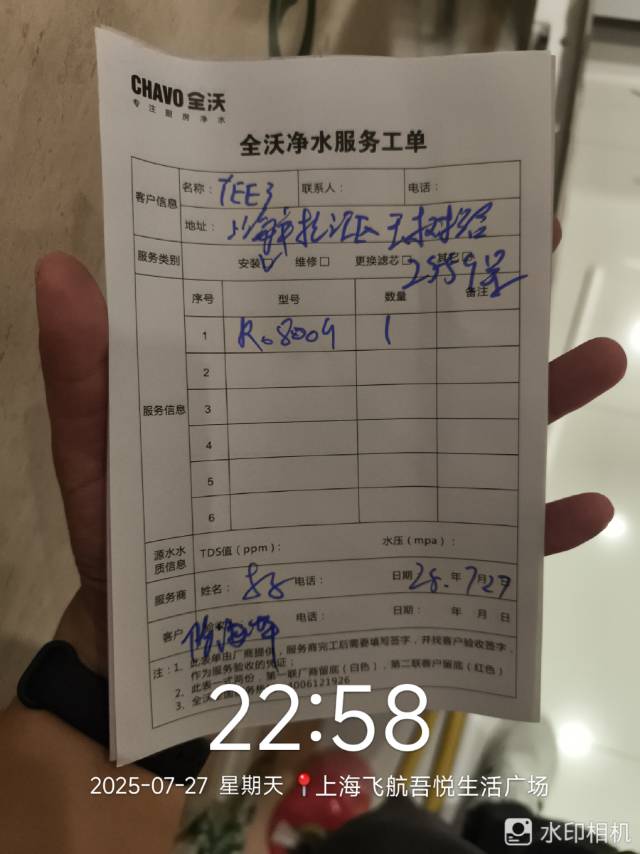 CHAVO 全沃
专注厨房净水
全沃净水服务工单
客户信息 名称： TEE3 联系人： 电话：
地址： 上海
服务类别 安装 维修□ 更换滤芯□ 其它□
2559号
序号 型号 数量 备注
1 Ro800G 1
2
服务信息 3
4
5
6
源水水质信息 TDS值（ppm）： 水压（mpa）：
服务商 姓名： 电话： 日期 年 7月27
客户 电话： 日期： 年 月 日
注：1、此表单由厂商提供，服务商完工后需要填写签字，并找客户验收签字，
作为服务验收的凭证；
2、此表一式两份，第一联厂商留底（白色），第二联客户留底（红色）
3、全沃 4006121926
22:58
2025-07-27 星期天 上海飞航吾悦生活广场
水印相机